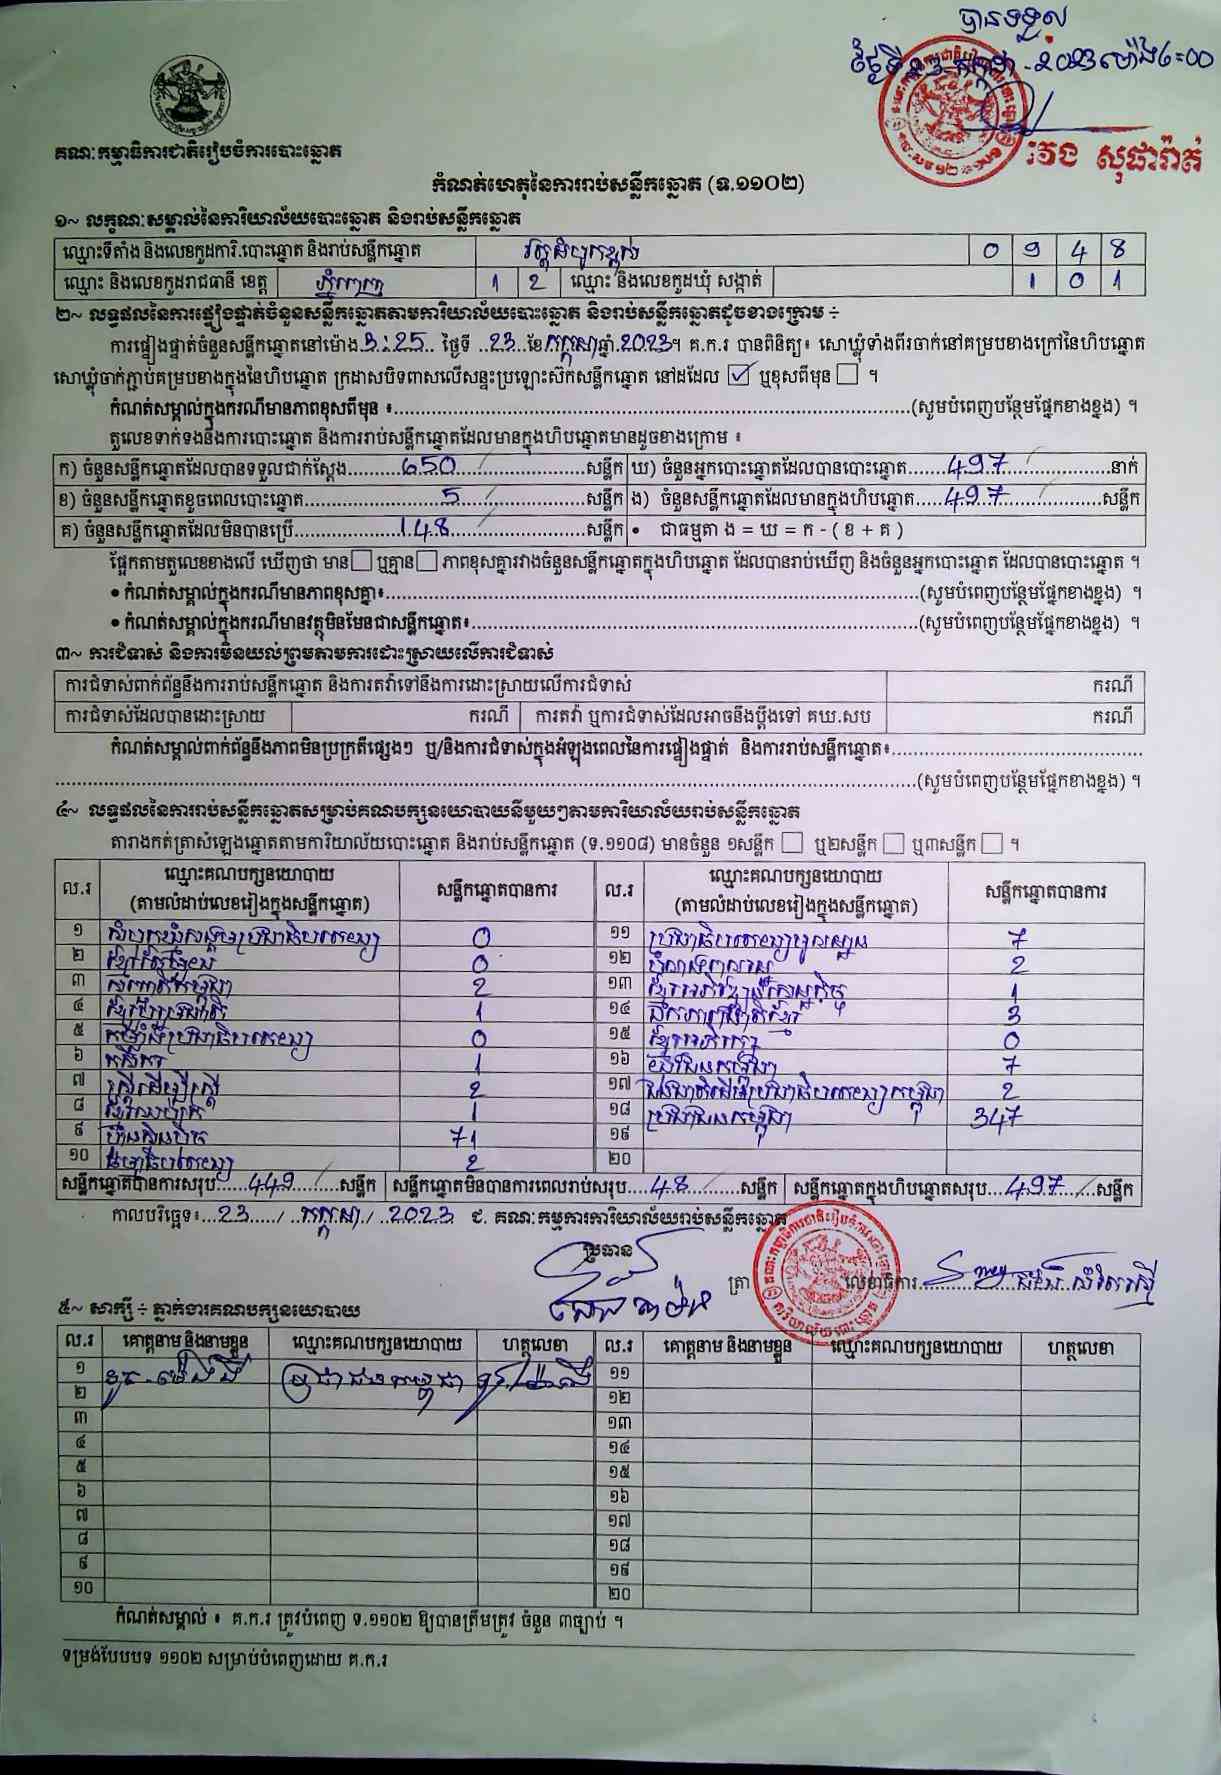 បានទទួល
ថ្ងៃទី ២៣ កក្កដា - ២០២៣ ម៉ោង ៤:០០
វេង សុផារ៉ាត់
គណៈកម្មាធិការជាតិរៀបចំការបោះឆ្នោត
កំណត់ហេតុនៃការរាប់សន្លឹកឆ្នោត (ទ.១១០២)
១~ លក្ខណៈសម្គាល់នៃការិយាល័យបោះឆ្នោត និងរាប់សន្លឹកឆ្នោត
ឈ្មោះទីតាំង និងលេខកូដការិ.បោះឆ្នោត និងរាប់សន្លឹកឆ្នោត 0 9 4 8
ឈ្មោះ និងលេខកូដរាជធានី ខេត្ត ភ្នំពេញ 1 2 ឈ្មោះ និងលេខកូដឃុំ សង្កាត់ 1 0 1
២~ លទ្ធផលនៃការផ្ទៀងផ្ទាត់ចំនួនសន្លឹកឆ្នោតតាមការិយាល័យបោះឆ្នោត និងរាប់សន្លឹកឆ្នោតដូចខាងក្រោម ÷
ការផ្ទៀងផ្ទាត់ចំនួនសន្លឹកឆ្នោតនៅម៉ោង 3:25 ថ្ងៃទី 23 ខែ កក្កដា ឆ្នាំ 2023។ គ.ក.រ បានពិនិត្យ៖ សោឃ្លុំទាំងពីរចាក់នៅគម្របខាងក្រៅនៃហិបឆ្នោត
សោឃ្លុំចាក់ភ្ជាប់គម្របខាងក្នុងនៃហិបឆ្នោត ក្រដាសបិទពាសលើសន្ទះប្រឡោះស៊កសន្លឹកឆ្នោត នៅដដែល ☑ ឬខុសពីមុន ☐ ។
កំណត់សម្គាល់ក្នុងករណីមានភាពខុសពីមុន ៖ (សូមបំពេញបន្ថែមផ្នែកខាងខ្នង) ។
តួលេខទាក់ទងនឹងការបោះឆ្នោត និងការរាប់សន្លឹកឆ្នោតដែលមានក្នុងហិបឆ្នោតមានដូចខាងក្រោម ៖
ក) ចំនួនសន្លឹកឆ្នោតដែលបានទទួលជាក់ស្តែង 650 សន្លឹក ឃ) ចំនួនអ្នកបោះឆ្នោតដែលបានបោះឆ្នោត 497 នាក់
ខ) ចំនួនសន្លឹកឆ្នោតខូចពេលបោះឆ្នោត 5 សន្លឹក ង) ចំនួនសន្លឹកឆ្នោតដែលមានក្នុងហិបឆ្នោត 497 សន្លឹក
គ) ចំនួនសន្លឹកឆ្នោតដែលមិនបានប្រើ 148 សន្លឹក • ជាធម្មតា ង = ឃ = ក - ( ខ + គ )
ផ្អែកតាមតួលេខខាងលើ ឃើញថា មាន ☐ ឬគ្មាន ☐ ភាពខុសគ្នារវាងចំនួនសន្លឹកឆ្នោតក្នុងហិបឆ្នោត ដែលបានរាប់ឃើញ និងចំនួនអ្នកបោះឆ្នោត ដែលបានបោះឆ្នោត ។
• កំណត់សម្គាល់ក្នុងករណីមានភាពខុសគ្នា៖ (សូមបំពេញបន្ថែមផ្នែកខាងខ្នង) ។
• កំណត់សម្គាល់ក្នុងករណីមានវត្ថុមិនមែនជាសន្លឹកឆ្នោត៖ (សូមបំពេញបន្ថែមផ្នែកខាងខ្នង) ។
៣~ ការជំទាស់ និងការមិនយល់ព្រមតាមការដោះស្រាយលើការជំទាស់
ការជំទាស់ពាក់ព័ន្ធនឹងការរាប់សន្លឹកឆ្នោត និងការតវ៉ាទៅនឹងការដោះស្រាយលើការជំទាស់ ករណី
ការជំទាស់ដែលបានដោះស្រាយ ករណី ការតវ៉ា ឬការជំទាស់ដែលអាចនឹងប្តឹងទៅ គឃ.សប ករណី
កំណត់សម្គាល់ពាក់ព័ន្ធនឹងភាពមិនប្រក្រតីផ្សេងៗ ឬ/និងការជំទាស់ក្នុងអំឡុងពេលនៃការផ្ទៀងផ្ទាត់ និងការរាប់សន្លឹកឆ្នោត៖
(សូមបំពេញបន្ថែមផ្នែកខាងខ្នង) ។
៤~ លទ្ធផលនៃការរាប់សន្លឹកឆ្នោតសម្រាប់គណបក្សនយោបាយនីមួយៗតាមការិយាល័យរាប់សន្លឹកឆ្នោត
តារាងកត់ត្រាសំឡេងឆ្នោតតាមការិយាល័យបោះឆ្នោត និងរាប់សន្លឹកឆ្នោត (ទ.១១០៨) មានចំនួន ១សន្លឹក ☐ ឬ២សន្លឹក ☐ ឬ៣សន្លឹក ☐ ។
ល.រ ឈ្មោះគណបក្សនយោបាយ (តាមលំដាប់លេខរៀងក្នុងសន្លឹកឆ្នោត) សន្លឹកឆ្នោតបានការ ល.រ ឈ្មោះគណបក្សនយោបាយ (តាមលំដាប់លេខរៀងក្នុងសន្លឹកឆ្នោត) សន្លឹកឆ្នោតបានការ
១ សំបុកឃ្មុំសង្គមប្រជាធិបតេយ្យ 0 ១១ ប្រជាធិបតេយ្យមូលដ្ឋាន 7
២ 0 ១២ 2
៣ សញ្ជាតិកម្ពុជា 2 ១៣ ខ្មែរអភិវឌ្ឍន៍សេដ្ឋកិច្ច 1
៤ ខ្មែររួបរួមជាតិ 1 ១៤ ឯកភាពជាតិខ្មែរ 3
៥ កម្លាំងប្រជាធិបតេយ្យ 0 ១៥ 0
៦ កសិករ 1 ១៦ យុវជនកម្ពុជា 7
៧ ស្ត្រីដើម្បីស្ត្រី 2 ១៧ 2
៨ 1 ១៨ ប្រជាជនកម្ពុជា 347
៩ ហ៊្វុនស៊ិនប៉ិច 71 ១៩
១០ ធម្មាធិបតេយ្យ 2 ២០
សន្លឹកឆ្នោតបានការសរុប 449 សន្លឹក សន្លឹកឆ្នោតមិនបានការពេលរាប់សរុប 48 សន្លឹក សន្លឹកឆ្នោតក្នុងហិបឆ្នោតសរុប 497 សន្លឹក
កាលបរិច្ឆេទ៖ 23 / កក្កដា / 2023 ជ. គណៈកម្មការការិយាល័យរាប់សន្លឹកឆ្នោត
ប្រធាន
ត្រា លេខាធិការ
៥~ សាក្សី ÷ ភ្នាក់ងារគណបក្សនយោបាយ
ល.រ គោត្តនាម និងនាមខ្លួន ឈ្មោះគណបក្សនយោបាយ ហត្ថលេខា ល.រ គោត្តនាម និងនាមខ្លួន ឈ្មោះគណបក្សនយោបាយ ហត្ថលេខា
១ ប្រជាជនកម្ពុជា ១១
២ ១២
៣ ១៣
៤ ១៤
៥ ១៥
៦ ១៦
៧ ១៧
៨ ១៨
៩ ១៩
១០ ២០
កំណត់សម្គាល់ ៖ គ.ក.រ ត្រូវបំពេញ ទ.១១០២ ឱ្យបានត្រឹមត្រូវ ចំនួន ៣ច្បាប់ ។
ទម្រង់បែបបទ ១១០២ សម្រាប់បំពេញដោយ គ.ក.រ